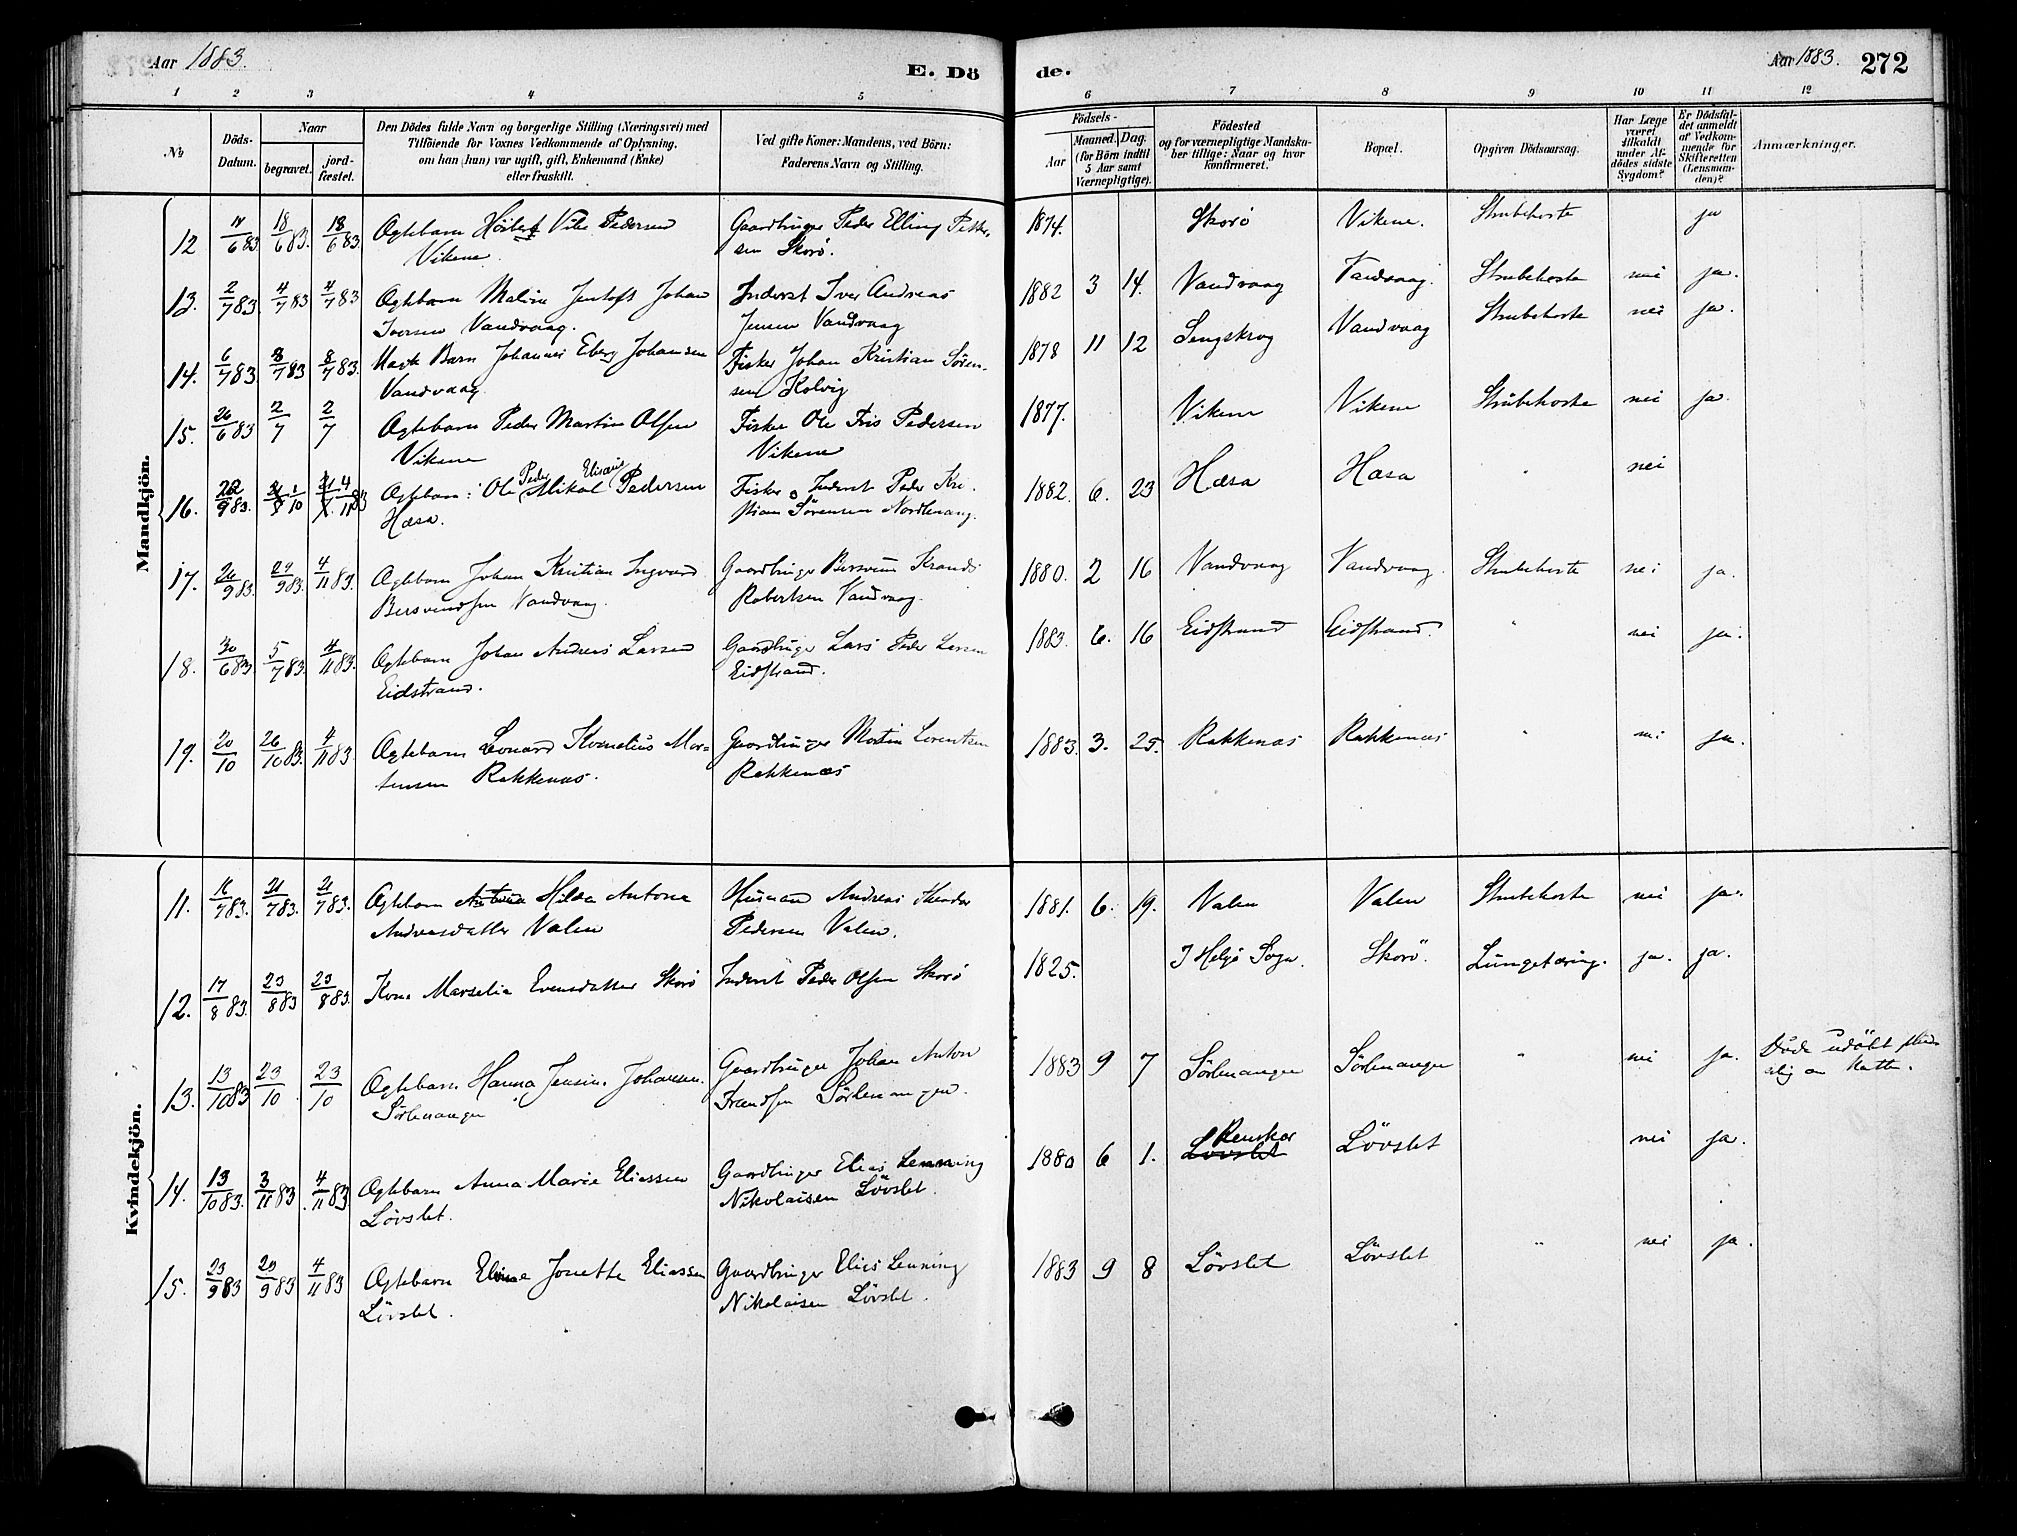 Aar 1883.
E. Dö
de.
Aar 1883.
272
1 2 3 4 5 6 7 8 9 10 11 12
No
Döds-Datum.
Naar
begravet.
jord-fæstet.
Den Dödes fulde Navn og borgerlige Stilling (Næringsvei) med
Tilföiende for Voxnes Vedkommende af Oplysning,
om han (hun) var ugift, gift, Enkemand (Enke)
eller fraskilt.
Ved gifte Koner: Mandens, ved Börn:
Faderens Navn og Stilling.
Födsels-
Aar
Maaned. Dag.
(for Börn indtil
5 Aar samt
Værnepligtige).
Födested
og for værnepligtige Mandska-
ber tillige: Naar og hvor
konfirmeret.
Bopæl.
Opgiven Dödsaarsag.
Har Læge
været
tilkaldt
under Af-
dödes sidste
Sygdom?
Er Dödsfal-
det anmeldt
af Vedkom-
mende for
Skifteretten
(Lensman-
den)?
Anmærkninger.
Mandkjön.
12 18/6 83. 18/6 83. Ægtebarn Pedersen Gaardbruger Peder Elling Peter- 1874. Skorö Vikene. Strubehoste ja
Vikene sen Skorö.
13. 2/7 83. 4/7 83 4/7 83 Ægtebarn Jentoft Johan Inderst Iver Andreas 1882 3 14. Vandvaag Vandvaag. Strubehoste nei ja.
Iversen Vandvaag. Jensen Vandvaag
14. 6/7 83. 8/7 83 8/7 83. Barn Johannes Eberg Johansen Fisker Johan Kristian Sören- 1878 11 12 Vandvaag Strubehoste nei ja.
Vandvaag sen Kolvig
15. 26/6 83 2/7 2/7 Ægtebarn Peder Martin Olsen Fisker Ole Pedersen 1877. Vikene Vikene Strubehoste nei ja.
Vikene Vikene
16. 22/9 83. Ægtebarn: Ole Peder Mikal Pedersen Fisker o Inderst Peder Kri- 1882. 6. 23 Hæsa Hæsa " nei
Hæsa. stian Sörensen
17. 24/9 83. 29/9 83. 4/11 83. Ægtebarn Johan Kristian Ingvard Gaardbruger 1880. 2 16 Vandvaag Vandvaag. Strubehoste nei ja.
Bersvendsen Vandvaag. Robertsen Vandvaag.
18. 30/6 83. 5/7 83. 4/11 83. Ægtebarn Johan Andreas Larsen Gaardbruger Lars Peder Larsen 1883. 6. 16 Eidstrand Eidstrand. " nei ja.
Eidstrand. Eidstrand.
19. 20/10 26/10 83. 4/11 83 Ægtebarn Leonard Kornelius Mor- Gaardbruger Morten Lorentsen 1883. 3. 25. Rakkenæs Rakkenæs " nei ja.
tensen Rakkenæs. Rakkenæs
Kvindekjön.
11. 16/7 83. 21/7 83. 21/7 83. Ægtebarn Hilda Antona Husmand Andreas Pedersen 1881. 6. 19. Valen Valen Strubehoste nei ja.
Andreasdatter Valen Valen.
12. 17/8 83. 23/8 83 23/8 83. Kone Marselia Evensdatter Skorö Inderst Peder Olsen Skorö 1825. I Helgö Sogn. Skorö. Lungetæring. ja. ja.
13. 13/10 83 23/10 23/10 Ægtebarn Hanna Jensine Johansen. Gaardbruger Johan Anton 1883 9 7 Sörlenangen Sörlenangen " nei ja. Döde udöbt
Sörlenangen Sörlenangen.
14. 13/10 83. 3/11 83 4/11 83 Ægtebarn Anna Marie Eliassen Gaardbruger Elias Lenning 1880 6 1. Lövslet Renskar Lövslet nei ja.
Lövslet. Nikolaisen Lövslet.
15. 23/9 83 29/9 83 4/11 83 Ægtebarn Jonette Eliassen Gaardbruger Elias Lenning 1883 9 8 Lövslet Lövslet " nei ja.
Lövslet. Nikolaisen Lövslet.